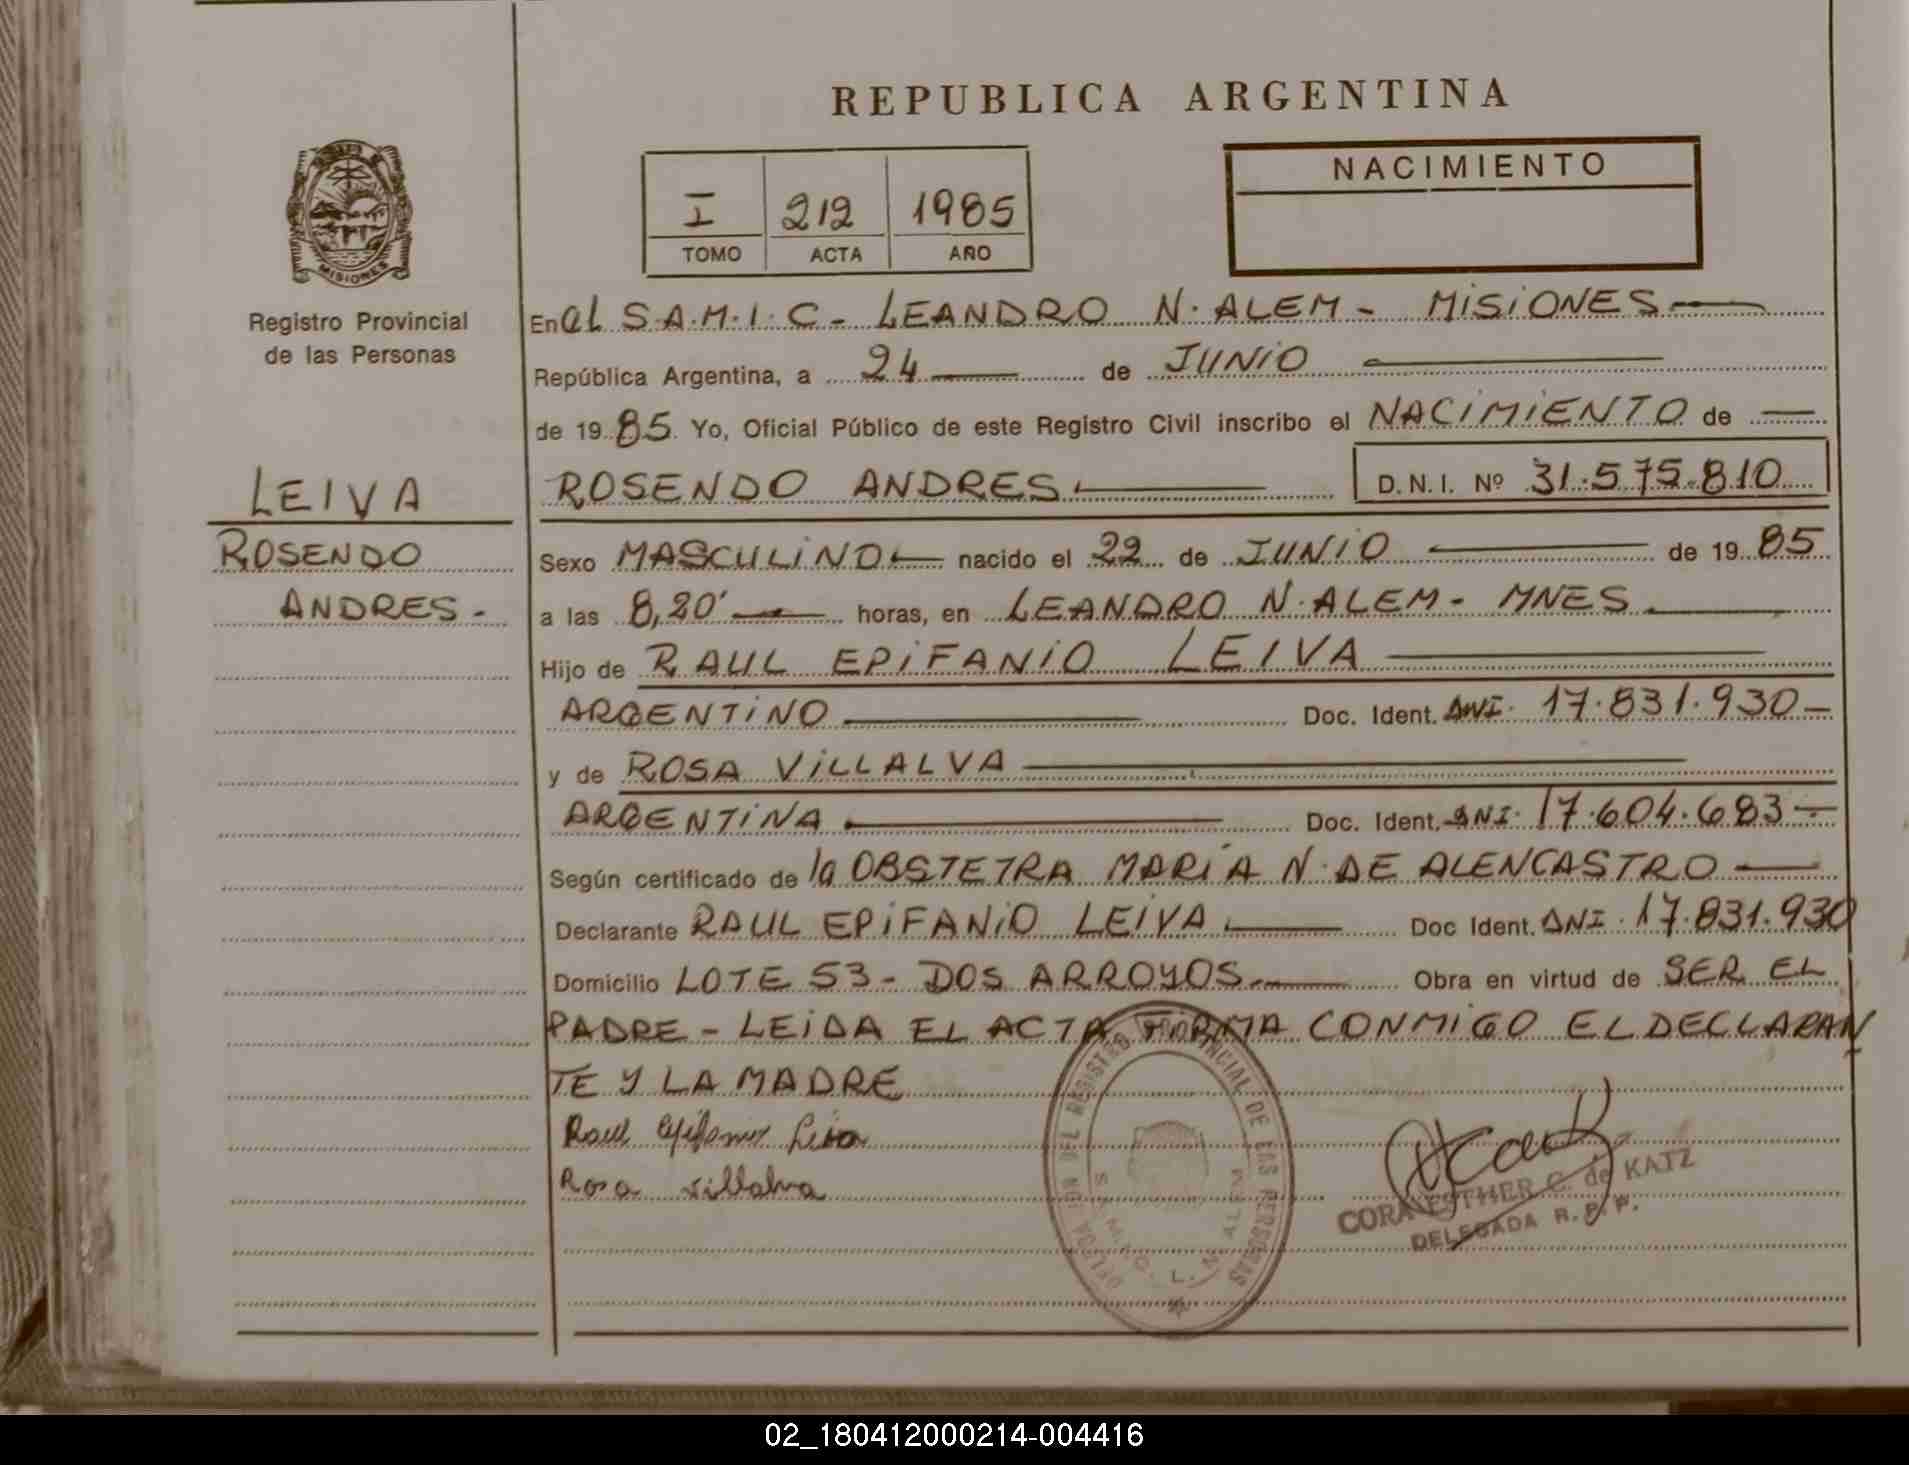 REPUBLICA ARGENTINA
NACIMIENTO
I 212 1985
TOMO ACTA AÑO
MISIONES
Registro Provincial
de las Personas
LEIVA
ROSENDO
ANDRES-
En el S.A.M.I.C- LEANDRO N. ALEM - MISIONES
República Argentina, a 24 de JUNIO
de 1985. Yo, Oficial Público de este Registro Civil inscribo el NACIMIENTO de
ROSENDO ANDRES D.N.I. Nº 31.575.810
Sexo MASCULINO nacido el 22 de JUNIO de 1985
a las 8,20' horas, en LEANDRO N. ALEM - MNES
Hijo de RAUL EPIFANIO LEIVA
ARGENTINO Doc. Ident. DNI. 17.831.930-
y de ROSA VILLALVA
ARGENTINA Doc. Ident. DNI. 17.604.683-
Según certificado de la OBSTETRA MARIA N. DE ALENCASTRO
Declarante RAUL EPIFANIO LEIVA Doc Ident. DNI. 17.831.930
Domicilio LOTE 53 - DOS ARROYOS Obra en virtud de SER EL
PADRE - LEIDA EL ACTA FIRMA CONMIGO EL DECLARAN
TE Y LA MADRE
Raul Epifanio Leiva
Rosa Villalva
DEL REGISTRO PROVINCIAL DE LAS PERSONAS
S.A.M.I.C. L. N. ALEM
CORA ESTHER C. de KATZ
DELEGADA R.P.P.
02_180412000214-004416